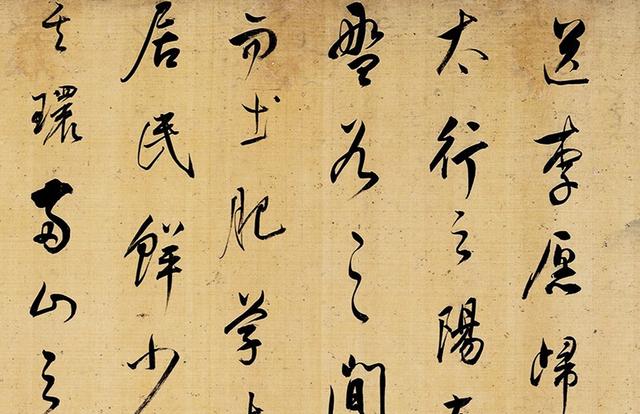 送李愿歸
太行之陽
盤谷之間
而土肥草
居民鮮少
其環兩山之